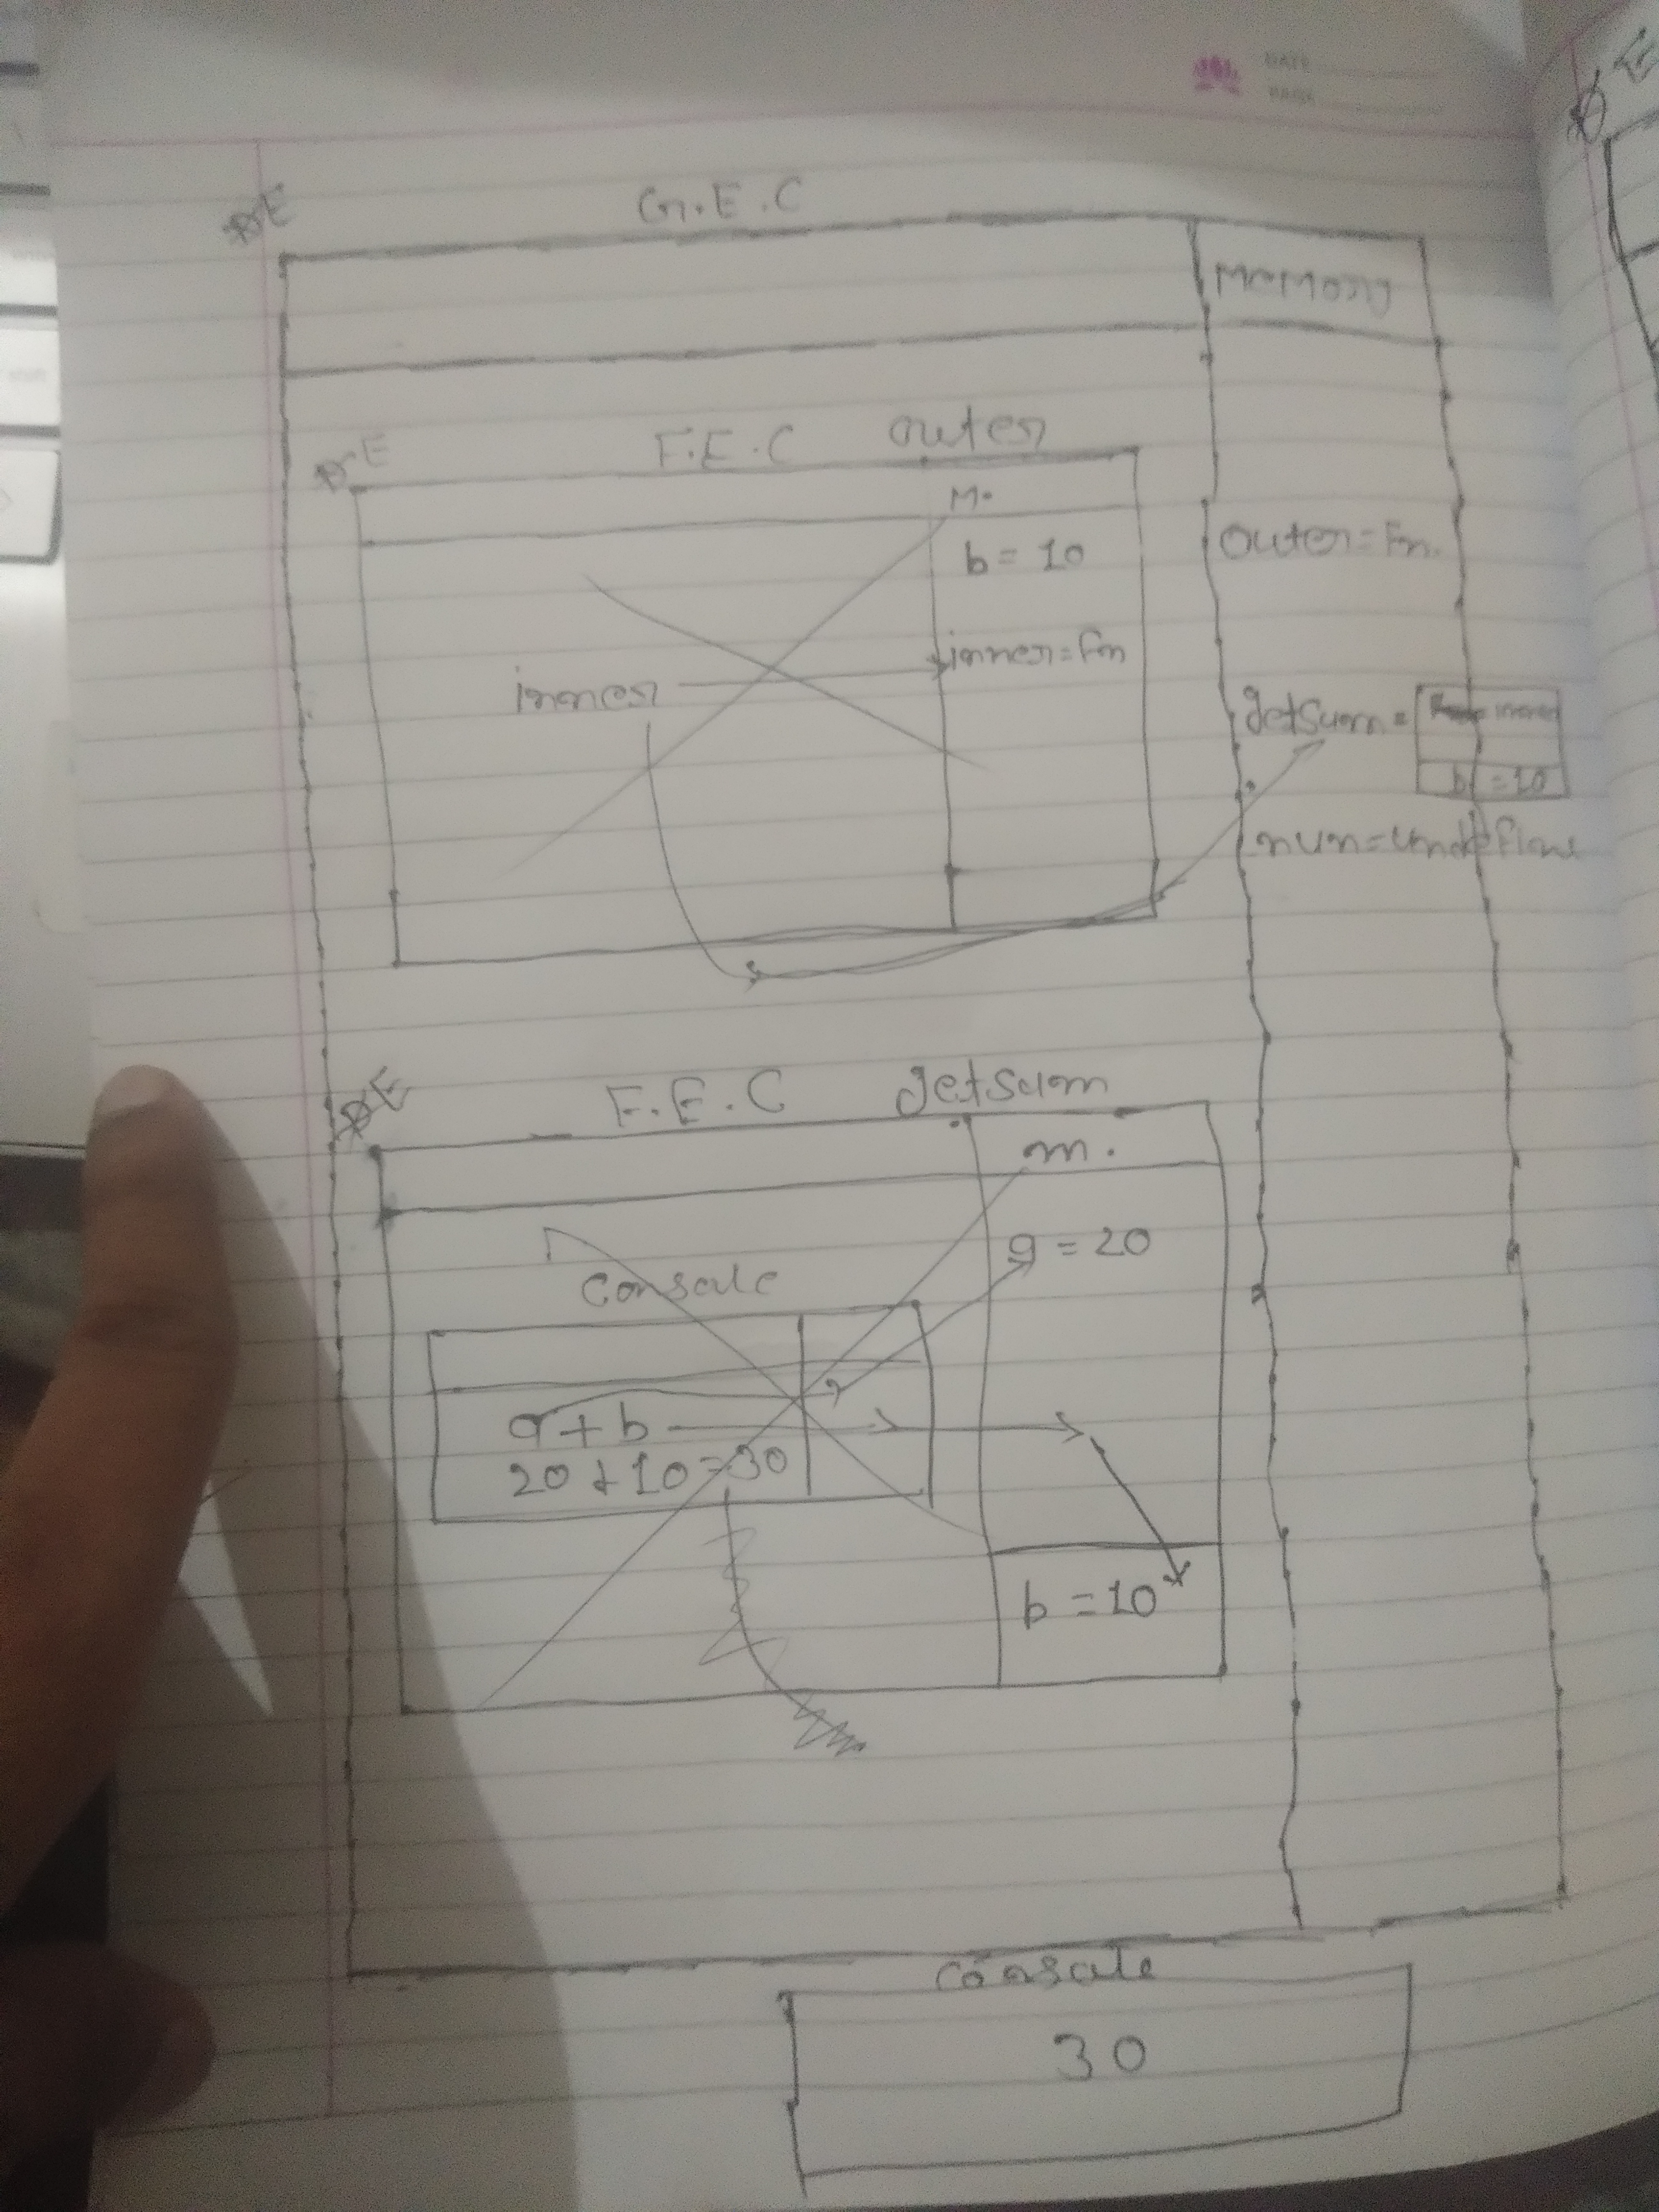 DATE
PAGE
G.E.C
Memory
F.E.C outer
M.
b = 10
outer = Fn.
inner = Fn
inner
getSum =
inner
b = 10
num = undefine
F.E.C getSum
m.
a = 20
Console
a + b
20 + 10 = 30
b = 10
Console
30